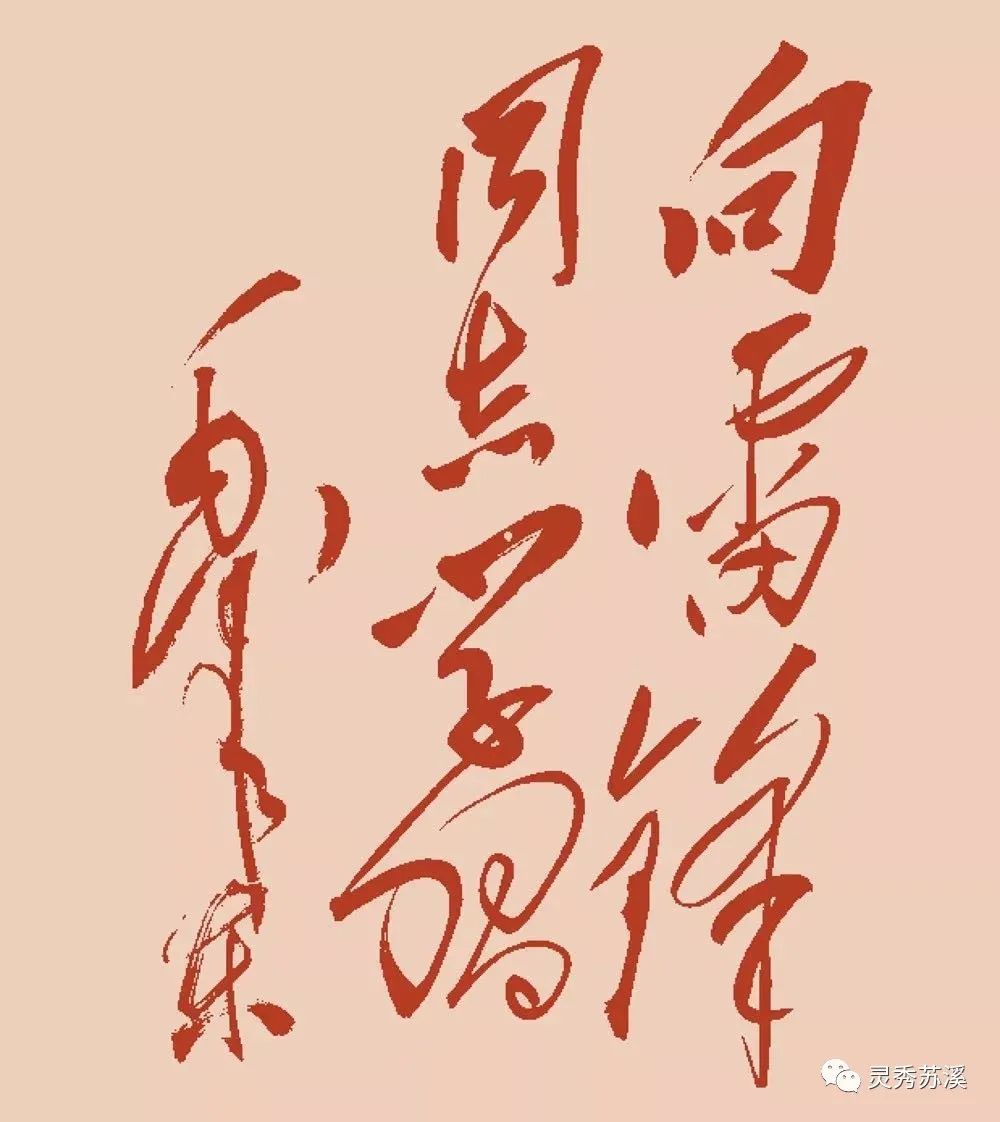 向雷锋
同志学习
毛泽东
灵秀苏溪